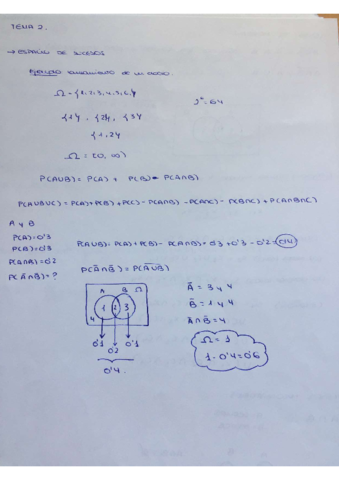 TEMA 2.
→ ESPACIO DE SUCESOS
EJEMPLO lanzamiento de un dado.
Ω = {1,2,3,4,5,6}
2⁶ = 64
{1}, {2}, {3}
{1,2}
Ω = (0, ∞)
P(A∪B) = P(A) + P(B) - P(A∩B)
P(A∪B∪C) = P(A)+P(B)+P(C)-P(A∩B)-P(A∩C)-P(B∩C)+P(A∩B∩C)
A y B
P(A)=0'3
P(B)=0'3
P(A∩B)=0'2
P(Ā∩B̄)=?
P(A∪B)=P(A)+P(B)-P(A∩B)=0'3+0'3-0'2=0'4
P(Ā∩B̄) = P(A∪B)
A B Ω
1 2 3
4
0'1 0'2 0'1
0'4
Ā = 3 y 4
B̄ = 1 y 4
Ā∩B̄ = 4
Ω = 1
1-0'4=0'6